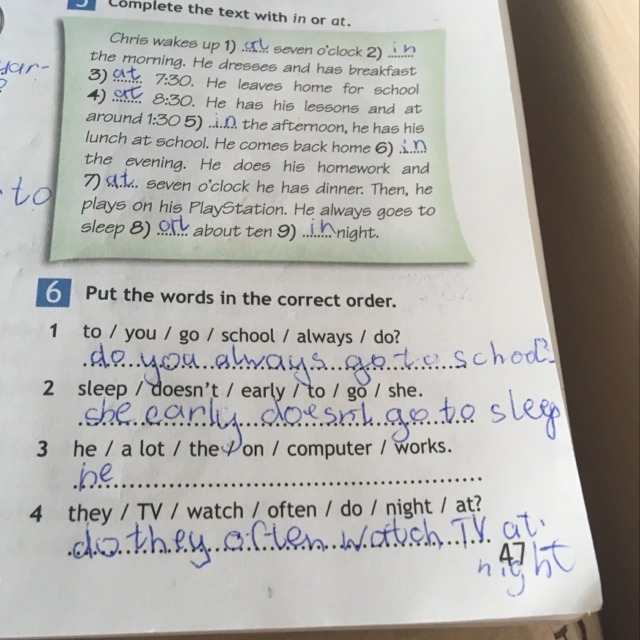 5 Complete the text with in or at.
Chris wakes up 1) at seven o'clock 2) in
the morning. He dresses and has breakfast
3) at 7:30. He leaves home for school
4) at 8:30. He has his lessons and at
around 1:30 5) in the afternoon, he has his
lunch at school. He comes back home 6) in
the evening. He does his homework and
7) at seven o'clock he has dinner. Then, he
plays on his PlayStation. He always goes to
sleep 8) at about ten 9) in night.
to
6 Put the words in the correct order.
1 to / you / go / school / always / do?
do you always go to school?
2 sleep / doesn't / early / to / go / she.
she early doesn't go to sleep
3 he / a lot / the / on / computer / works.
he
4 they / TV / watch / often / do / night / at?
do they often watch TV at
night
47